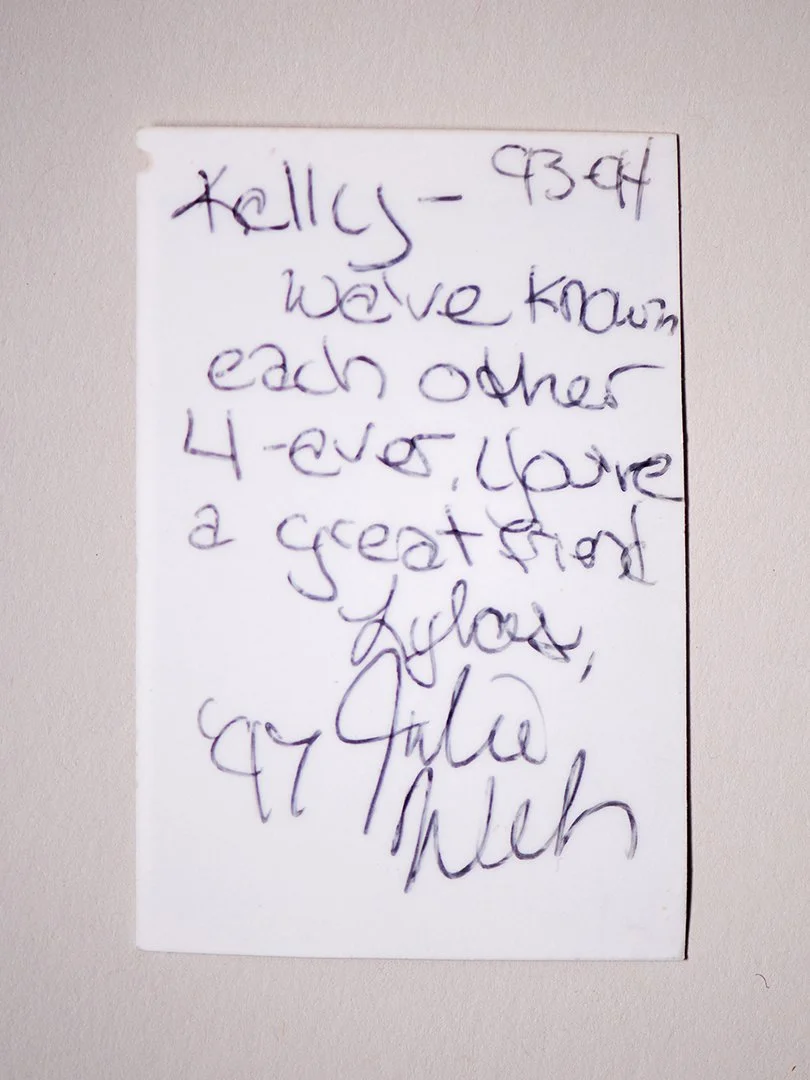 Kelly - 93-94
we've known
each other
4-ever. You're
a great friend
Lylas,
'97 Julie